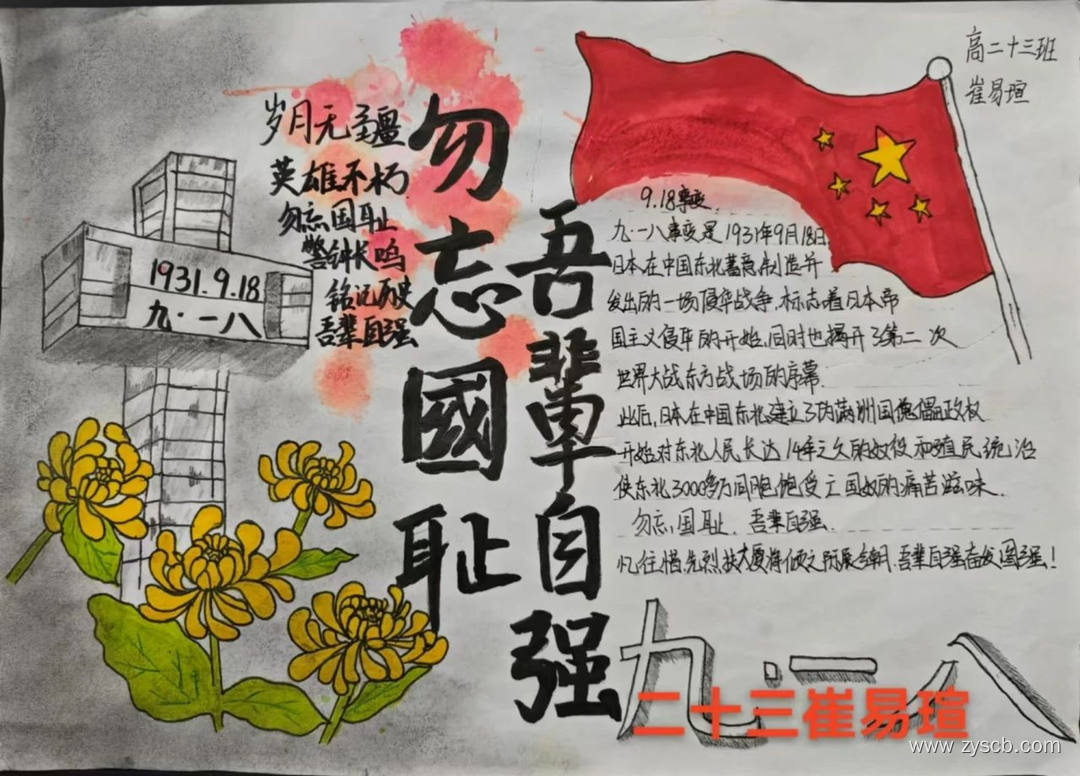 高二十三班
崔易瑄
岁月无疆
英雄不朽
勿忘国耻
警钟长鸣
铭记历史
吾辈自强
勿忘國耻
吾辈自强
1931.9.18
九·一八
9.18事变
九·一八事变是1931年9月18日
日本在中国东北蓄意制造并
发出的一场侵华战争,标志着日本帝
国主义侵华的开始,同时也揭开了第二次
世界大战东方战场的序幕.
此后,日本在中国东北建立了伪满洲国傀儡政权
开始对东北人民长达14年之久的奴役和殖民统治
使东北3000多万同胞饱受亡国奴的痛苦滋味.
勿忘国耻、吾辈自强、
忆往惜先烈扶大厦将倾之所展今朝,吾辈自强奋发图强!
九·一八
二十三崔易瑄
www.zyscb.com